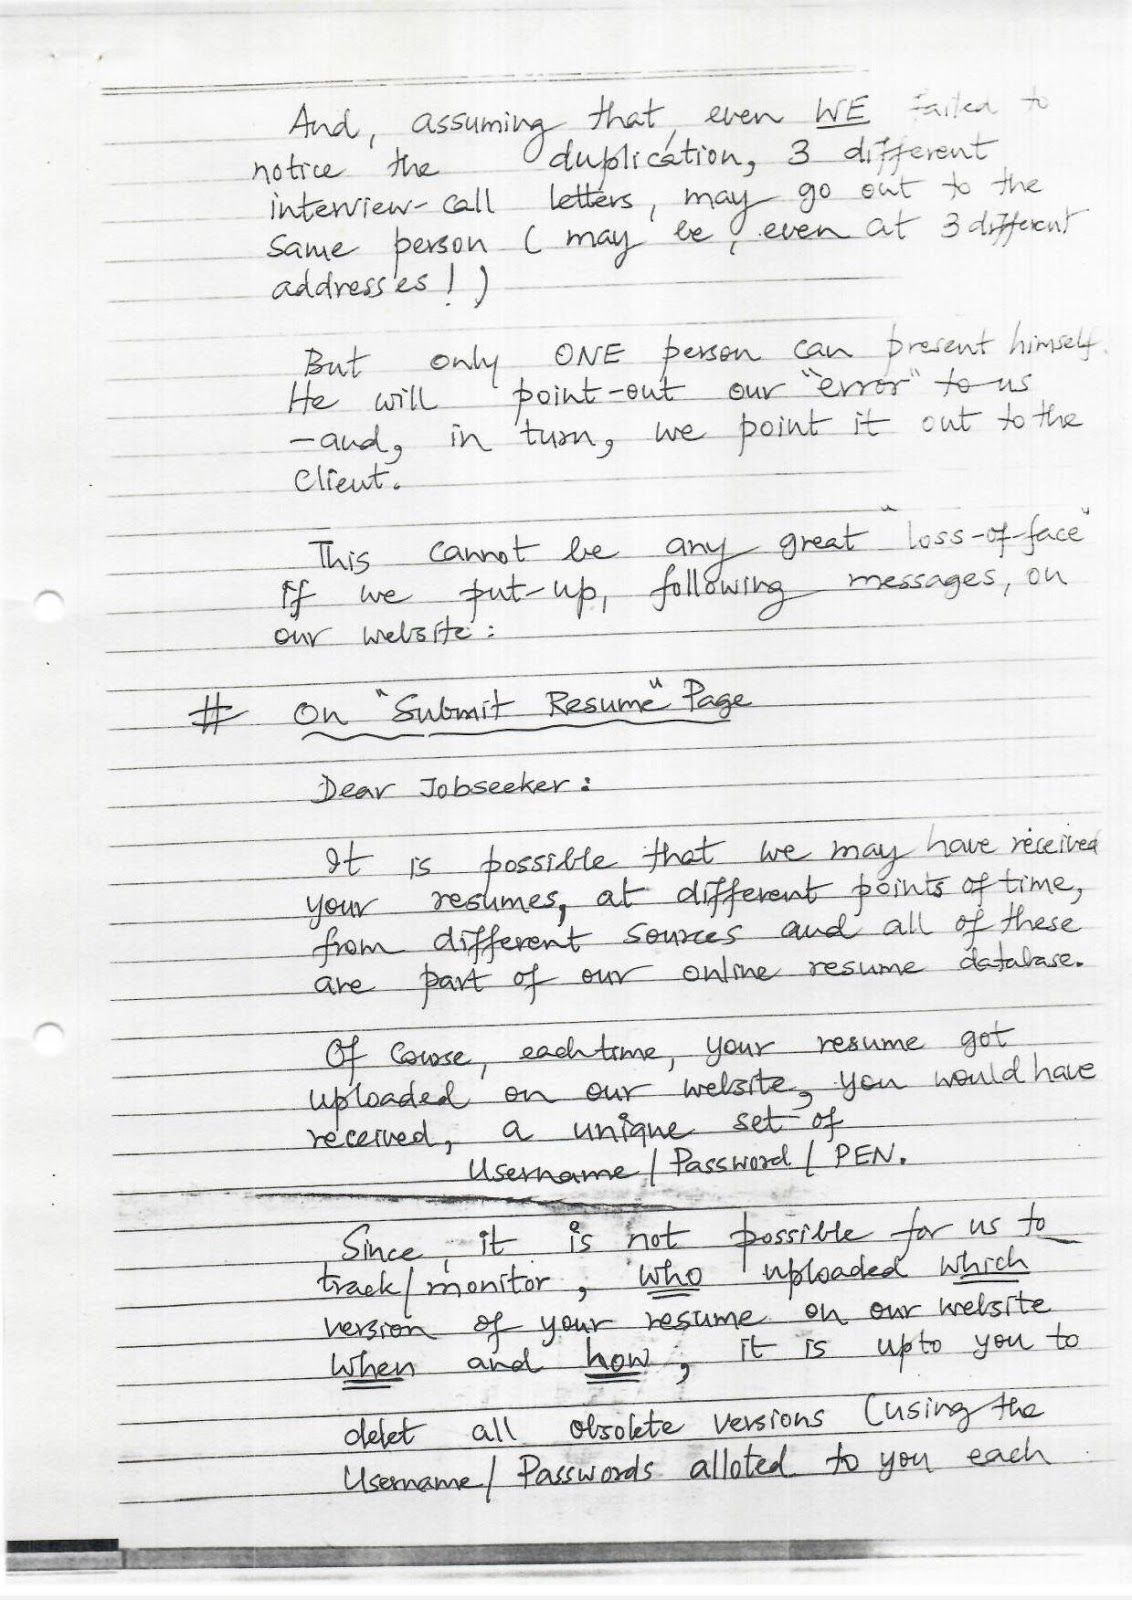 And, assuming that, even WE failed to
notice the duplication, 3 different
interview-call letters, may go out to the
same person (may be, even at 3 different
addresses!)
But only ONE person can present himself.
He will point-out our "error" to us
-and, in turn, we point it out to the
Client.
This cannot be any great "loss-of-face"
if we put-up, following messages, on
our website:
# On "Submit Resume" Page
Dear Jobseeker:
It is possible that we may have received
your resumes, at different points of time,
from different sources and all of these
are part of our online resume database.
Of Course, each time, your resume got
uploaded on our website, you would have
received, a unique set of
Username/Password/PEN.
Since, it is not possible for us to
track/monitor, who uploaded which
version of your resume on our website
when and how, it is upto you to
delet all obsolete versions (using the
Username/Passwords alloted to you each